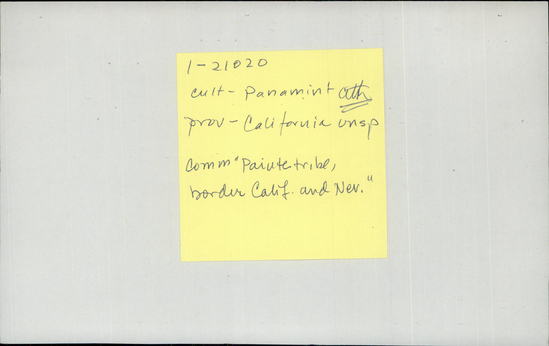 1-21020
cult- Panamint
prov - California unsp
comm "Paiute tribe,
border Calif. and Nev."